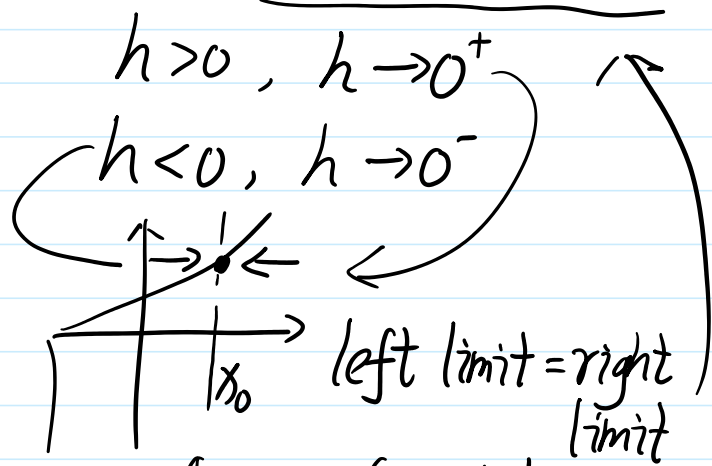 h>0, h→0⁺
h<0, h→0⁻
x₀
left limit = right
limit